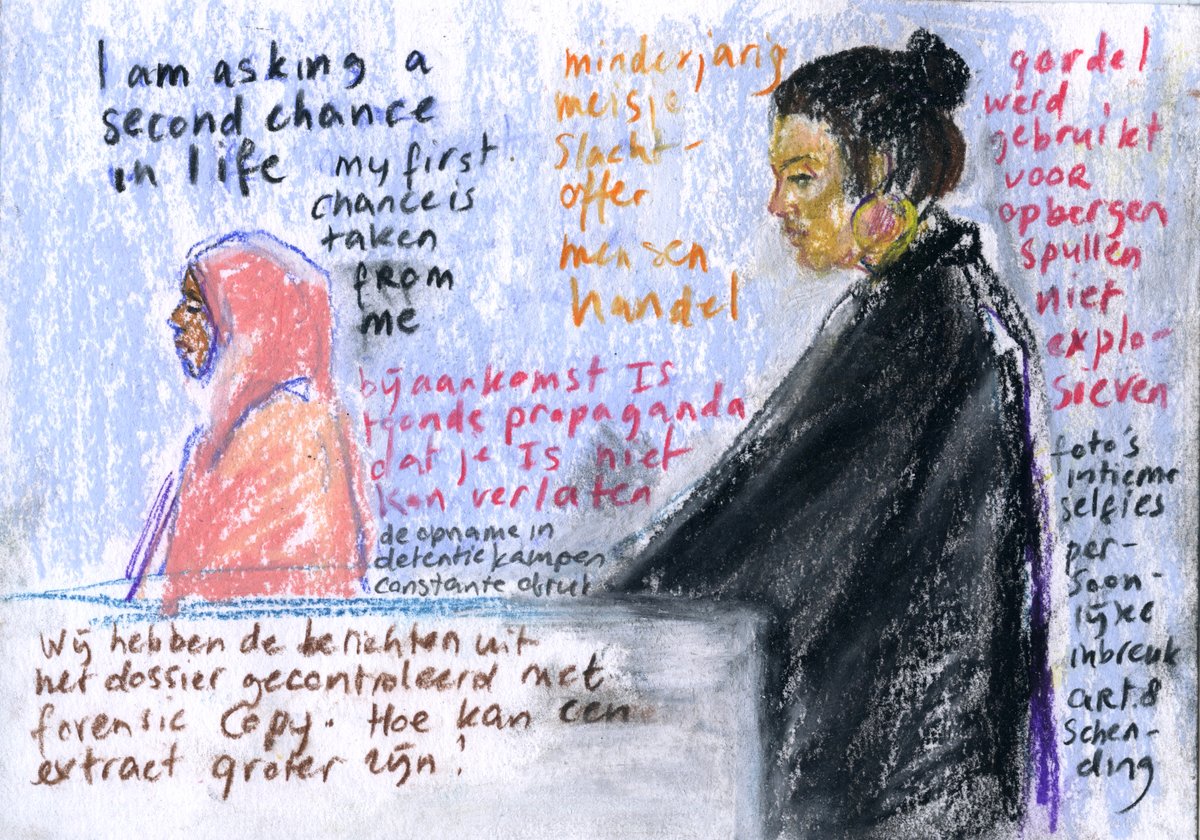 I am asking a
second chance
in life
my first
chance is
taken
from
me
minderjarig
meisje
slacht-
offer
mensen
handel
gordel
werd
gebruikt
voor
opbergen
spullen
niet
explo-
sieven
bij aankomst IS
toonde propaganda
dat je IS niet
kan verlaten
de opname in
detentiekampen
constante
foto's
intieme
selfies
per-
soon-
lijke
inbreuk
art. 8
schen-
ding
Wij hebben de berichten uit
het dossier gecontroleerd met
forensic copy. Hoe kan een
extract groter zijn?